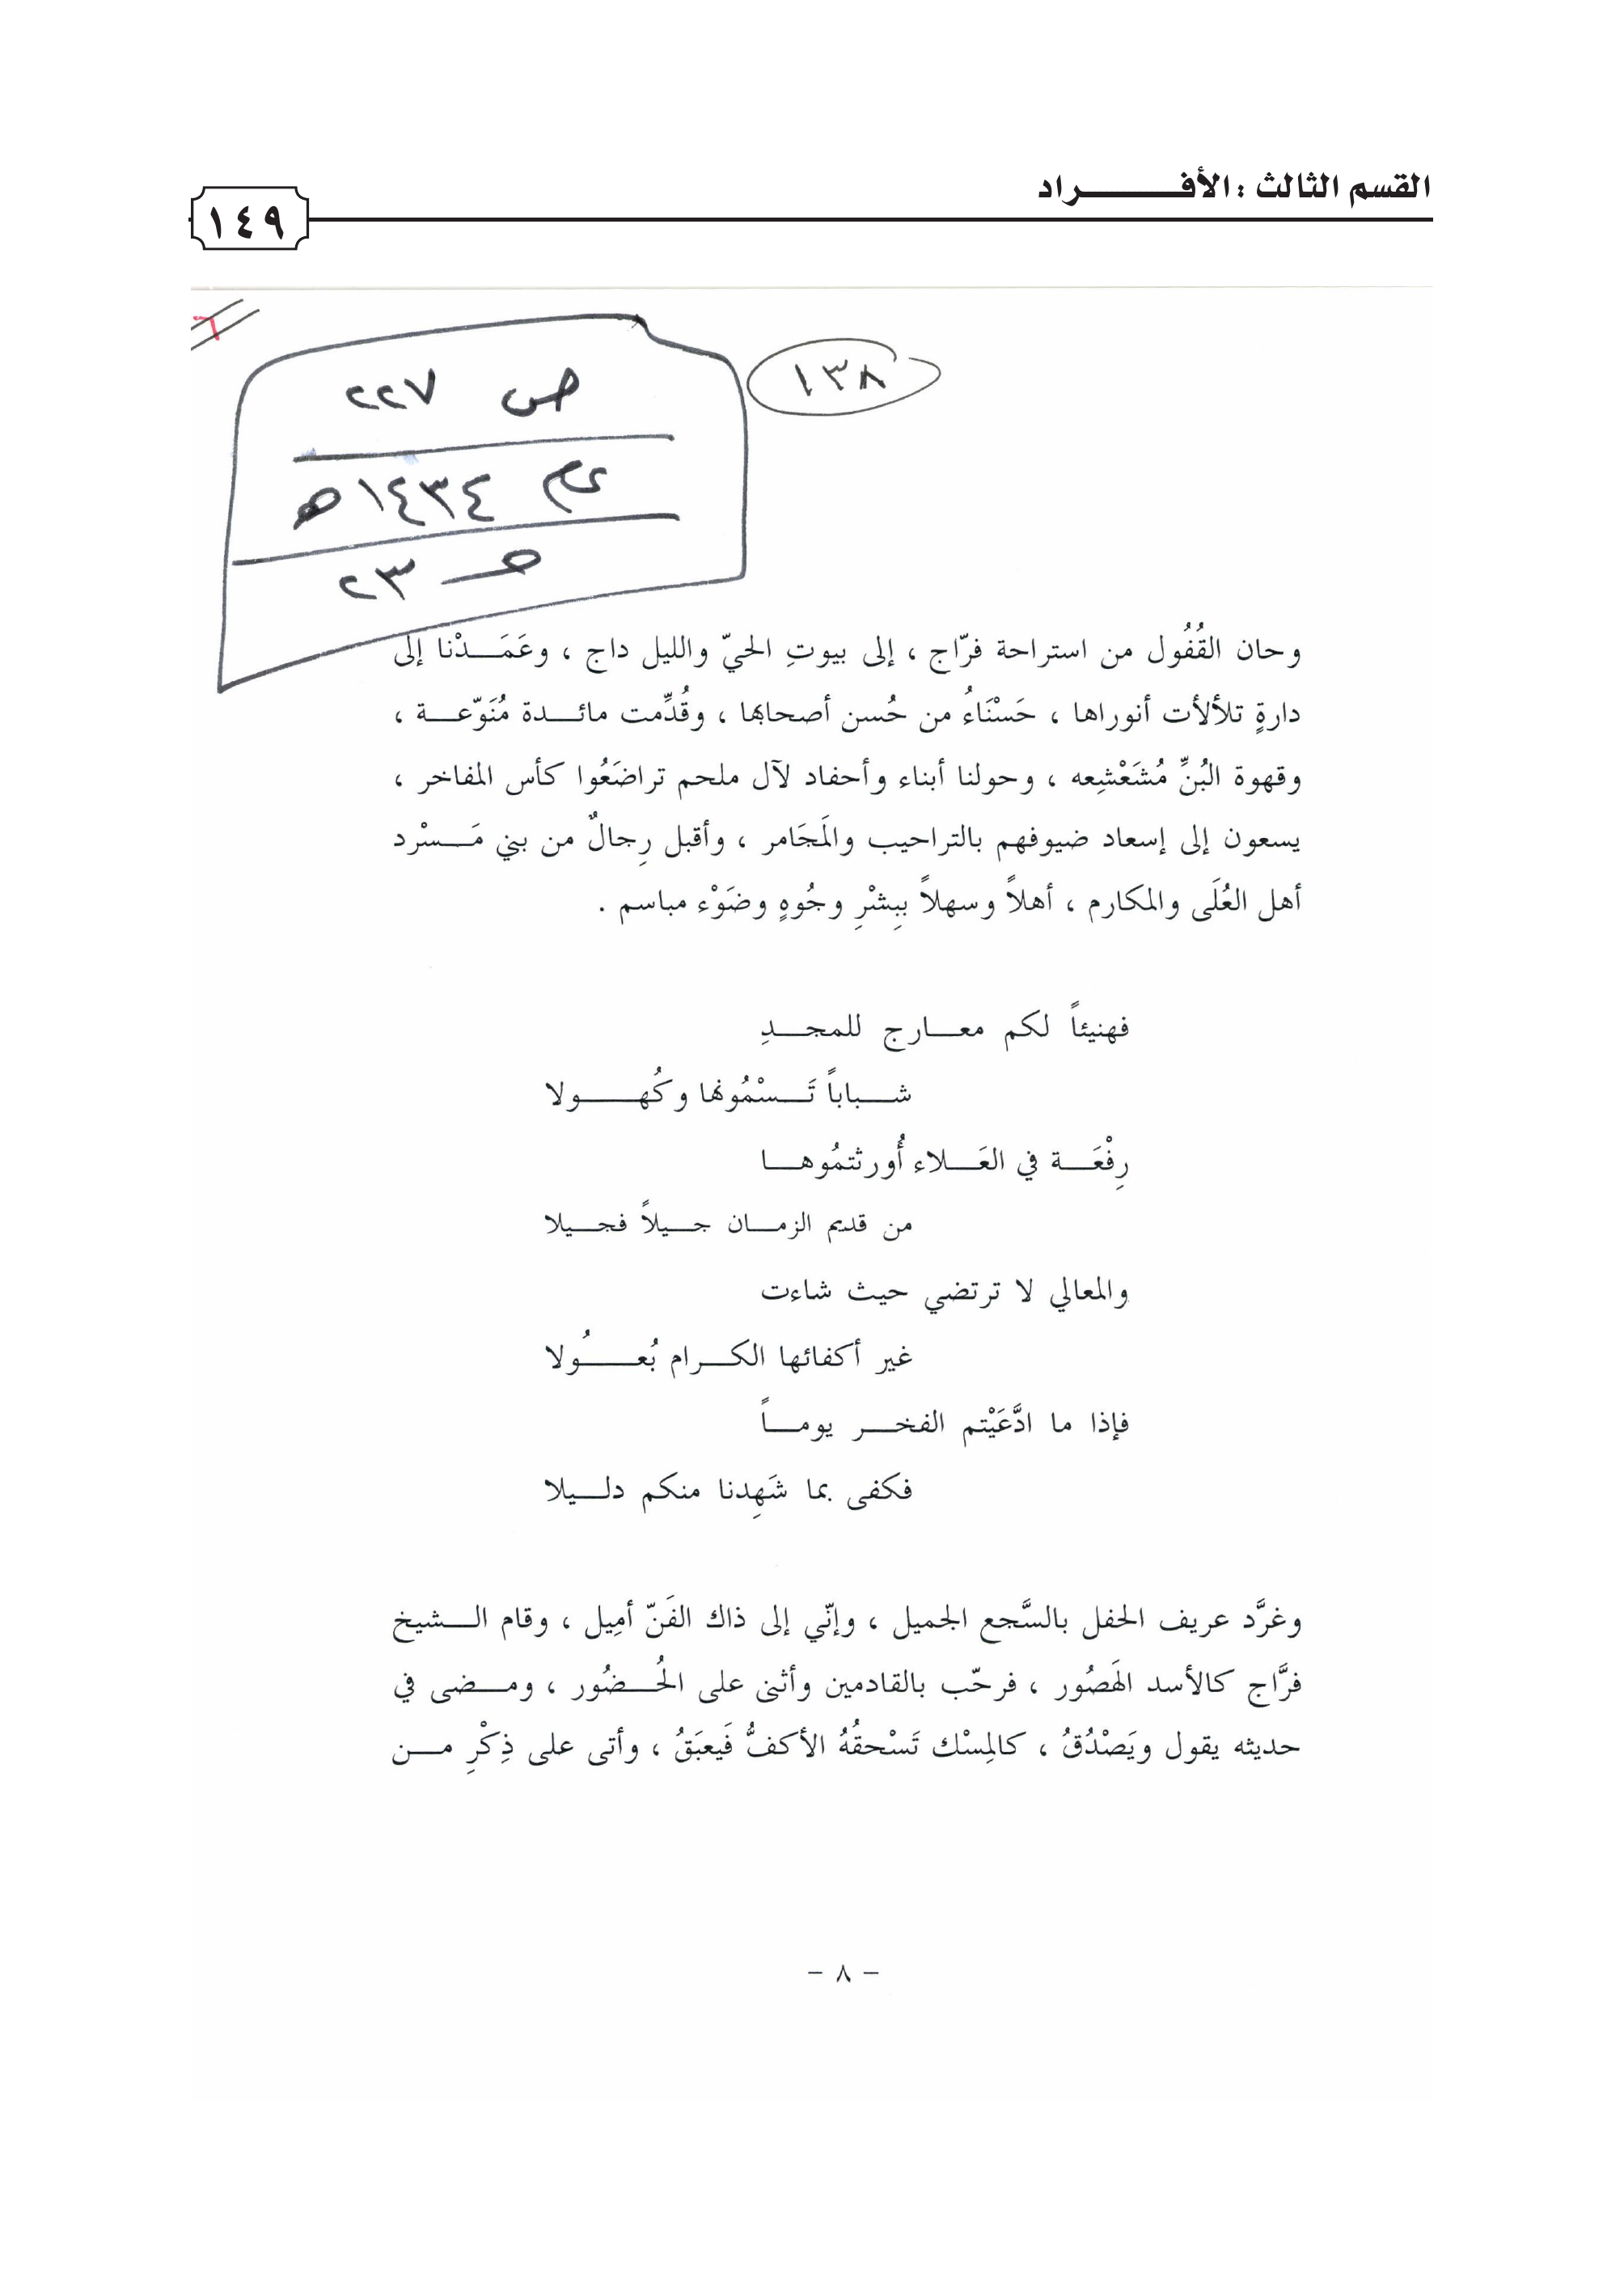 القسم الثالث : الأفـــــــراد
١٤٩
٦
١٣٨
ص ٢٢٧
عام ١٤٣٤هـ
حـ ٢٣
وحان القُفُول من استراحة فرّاج ، إلى بيوتِ الحيّ والليل داج ، وعَمَـــدْنا إلى
دارةٍ تلألأت أنوراها ، حَسْنَاءُ من حُسن أصحابها ، وقُدِّمت مائـــدة مُنَوّعـــة ،
وقهوة البُنِّ مُشَعْشِعه ، وحولنا أبناء وأحفاد لآل ملحم تراضَعُوا كأس المفاخر ،
يسعون إلى إسعاد ضيوفهم بالتراحيب والمَجَامر ، وأقبل رِجالٌ من بني مَـــسْرد
أهل العُلَى والمكارم ، أهلاً وسهلاً ببِشْرِ وجُوهٍ وضَوْء مباسم .
فهنيئاً لكم معـــارج للمجـــدِ
شـــباباً تَـــسْمُونها وكُهـــولا
رِفْعَـــة في العَـــلاء أُورثتمُوهـــا
من قديم الزمـــان جـــيلاً فجـــيلا
والمعالي لا ترتضي حيث شاءت
غير أكفائها الكـــرام بُعـــُولا
فإذا ما ادَّعَيْتم الفخـــر يومـــاً
فكفى بما شَهِدنا منكم دلـــيلا
وغرَّد عريف الحفل بالسَّجع الجميل ، وإنّي إلى ذاك الفَنّ أمِيل ، وقام الـــشيخ
فرَّاج كالأسد الهَصُور ، فرحّب بالقادمين وأثنى على الحُـــضُور ، ومـــضى في
حديثه يقول ويَصْدُقُ ، كالمِسْك تَسْحقُهُ الأكفُّ فَيعبَقُ ، وأتى على ذِكْرِ مـــن
- ٨ -